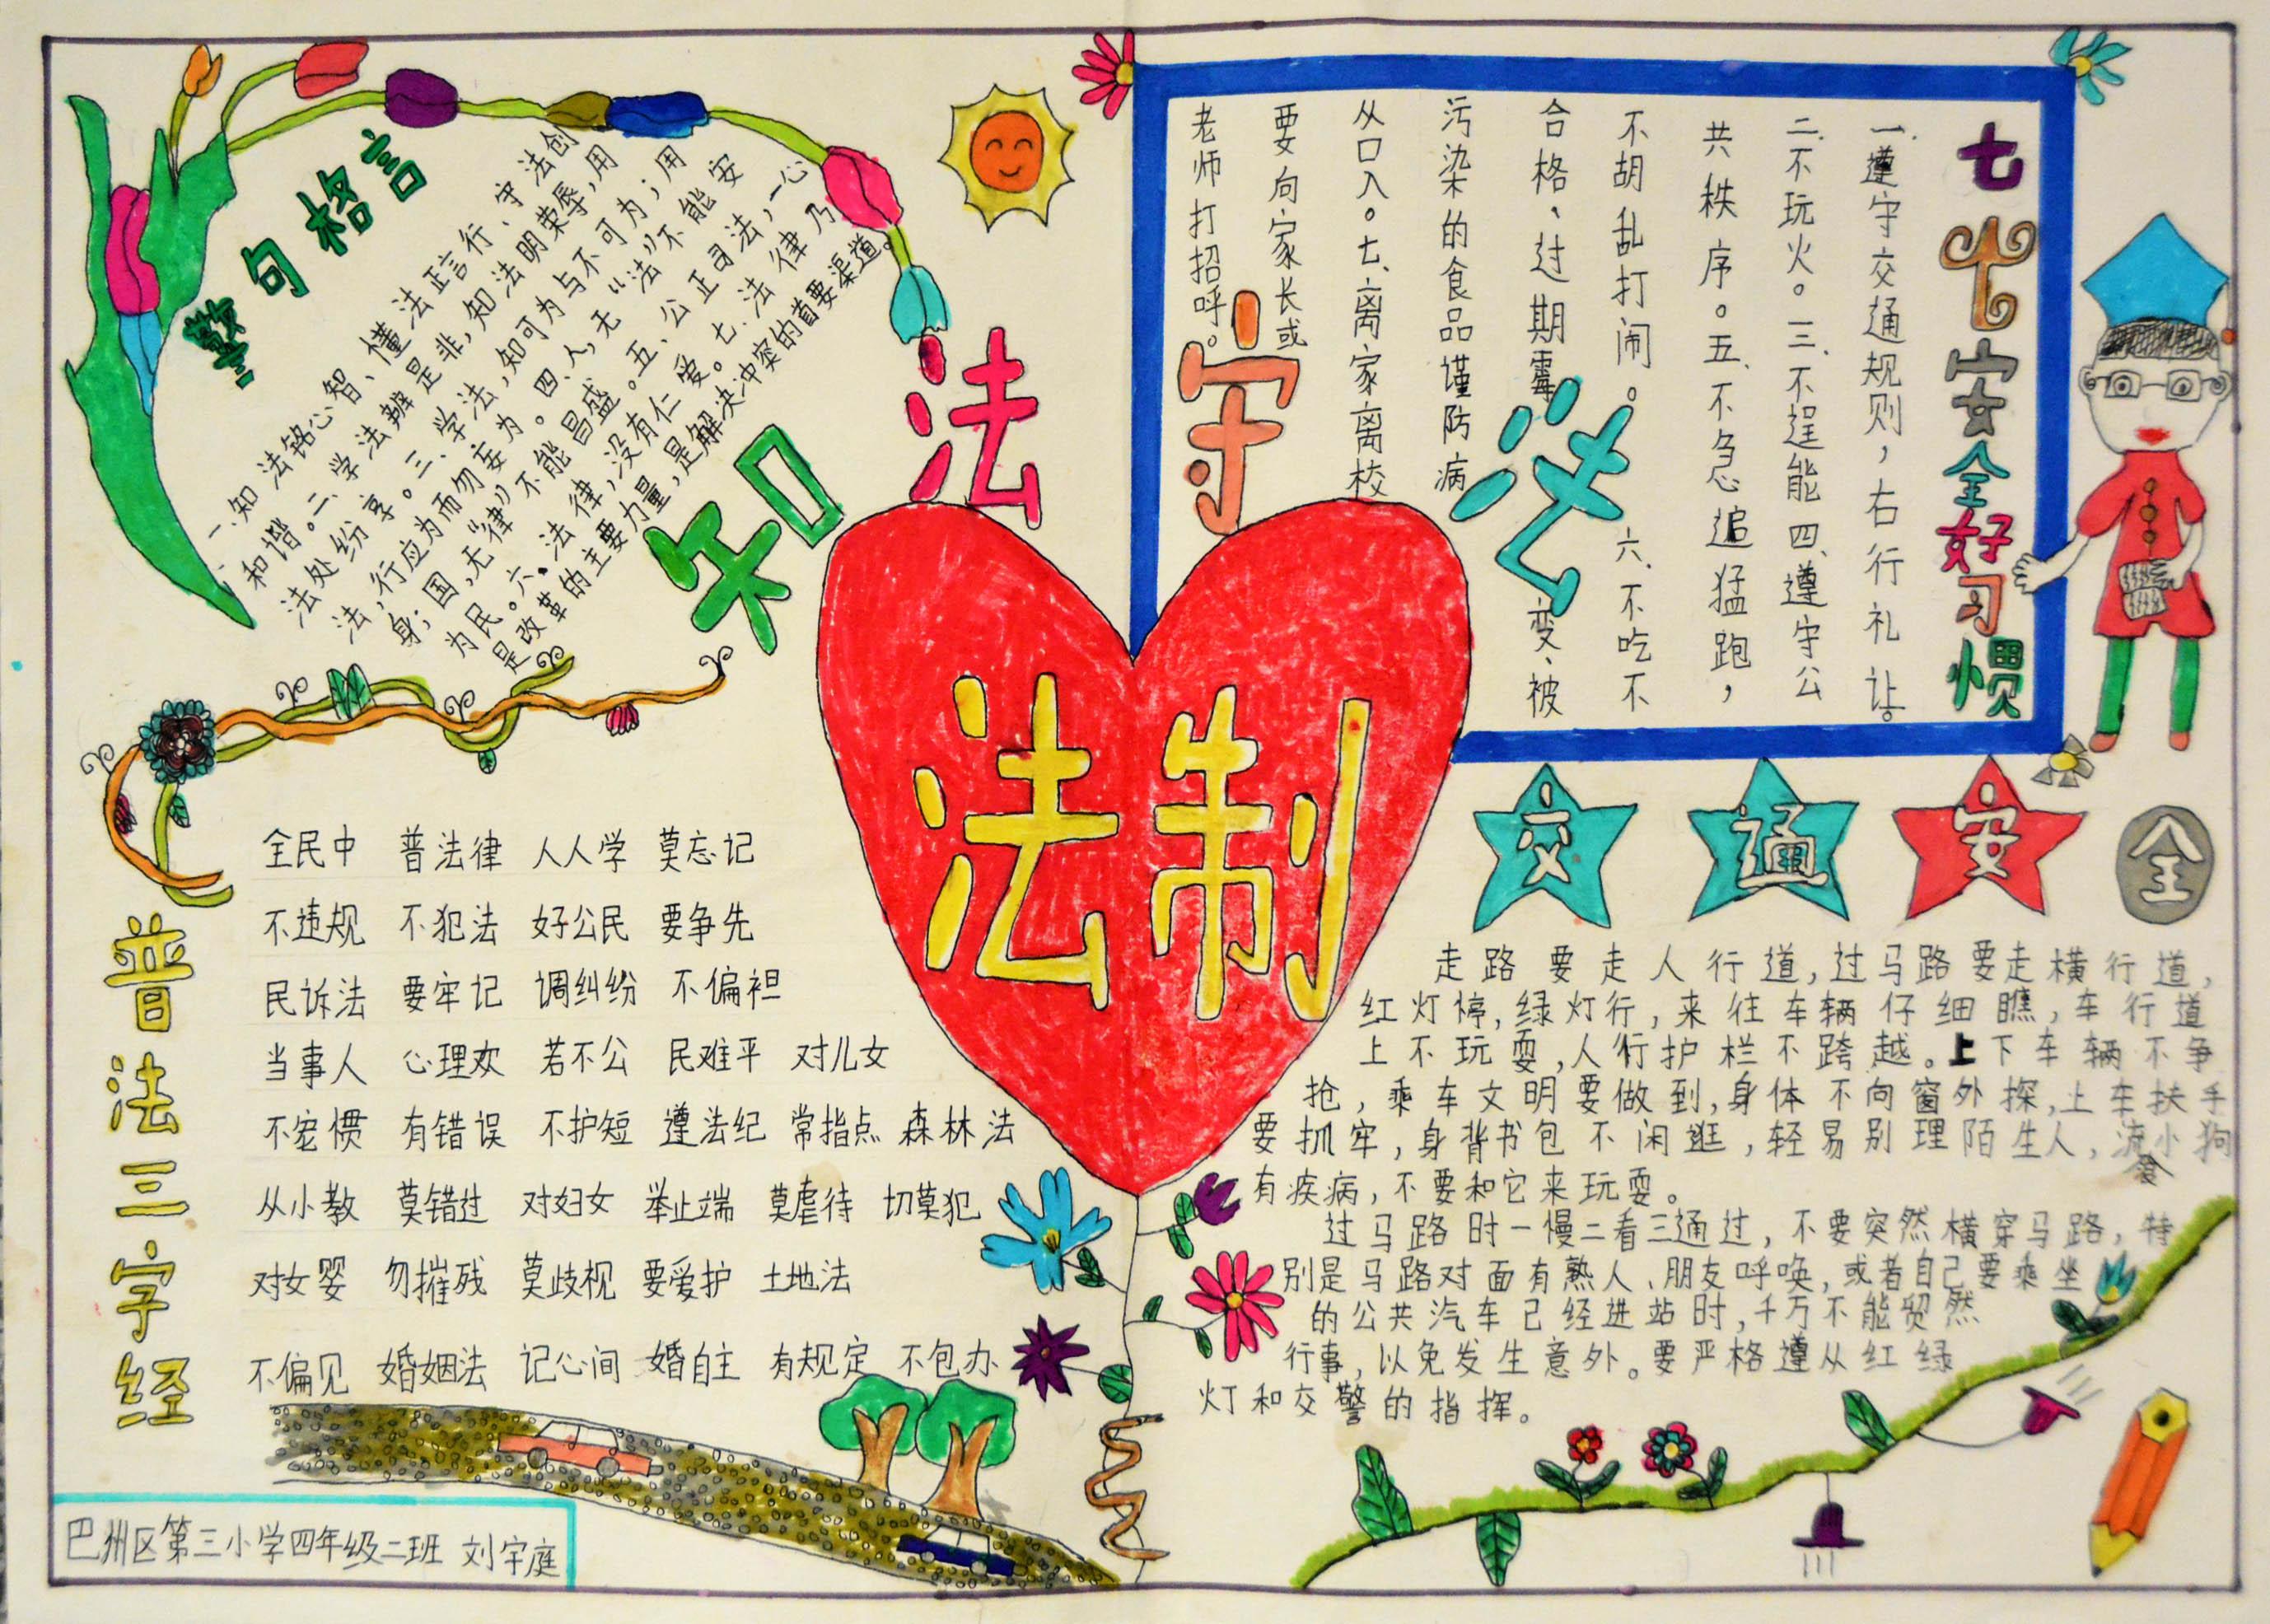 警句格言
一、知法铭心智、懂法正言行、守法创
和谐。二、学法辨是非,知法明荣辱,用
法处纷享。三、学法,知可为与不可为;用
法,行应为而勿妄为。四、人,无“法”不能安
身;国,无“律”不能昌盛。五、公正司法,一心
为民。六。法律,没有仁爱。七、法律乃
是改革的主要力量,是解决冲突的首要渠道。
知法
守法
法制
七个安全好习惯
一、遵守交通规则,右行礼让。
二、不玩火。三、不逞能四、遵守公
共秩序。五、不急追猛跑,
不胡乱打闹。六、不吃不
合格、过期霉变、被
污染的食品谨防病
从口入。七、离家离校
要向家长或
老师打招呼。
普法三字经
全民中 普法律 人人学 莫忘记
不违规 不犯法 好公民 要争先
民诉法 要牢记 调纠纷 不偏袒
当事人 心理欢 若不公 民难平 对儿女
不宠惯 有错误 不护短 遵法纪 常指点 森林法
从小教 莫错过 对妇女 举止端 莫虐待 切莫犯
对女婴 勿摧残 莫歧视 要爱护 土地法
不偏见 婚姻法 记心间 婚自主 有规定 不包办
交通安全
走路要走人行道,过马路要走横行道,
红灯停,绿灯行,来往车辆仔细瞧,车行道
上不玩耍,人行护栏不跨越。上下车辆不争
抢,乘车文明要做到,身体不向窗外探,上车扶手
要抓牢,身背书包不闲逛,轻易别理陌生人,流小狗
有疾病,不要和它来玩耍。
过马路时一慢二看三通过,不要突然横穿马路,特
别是马路对面有熟人、朋友呼唤,或者自己要乘坐
的公共汽车已经进站时,千万不能贸然
行事,以免发生意外。要严格遵从红绿
灯和交警的指挥。
巴州区第三小学四年级二班 刘宇庭